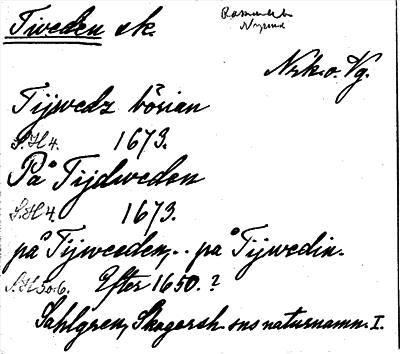 Tiveden sk.
Nrk. o. Vg.
Tijwedz börian
S.H 4. 1673.
På Tijdweden
S.H 4. 1673.
på Tijweeden,.. på Tijwedin.
S.H 50:6. Efter 1650.?
Sahlgren, Skagersh. sns naturnamn. I.